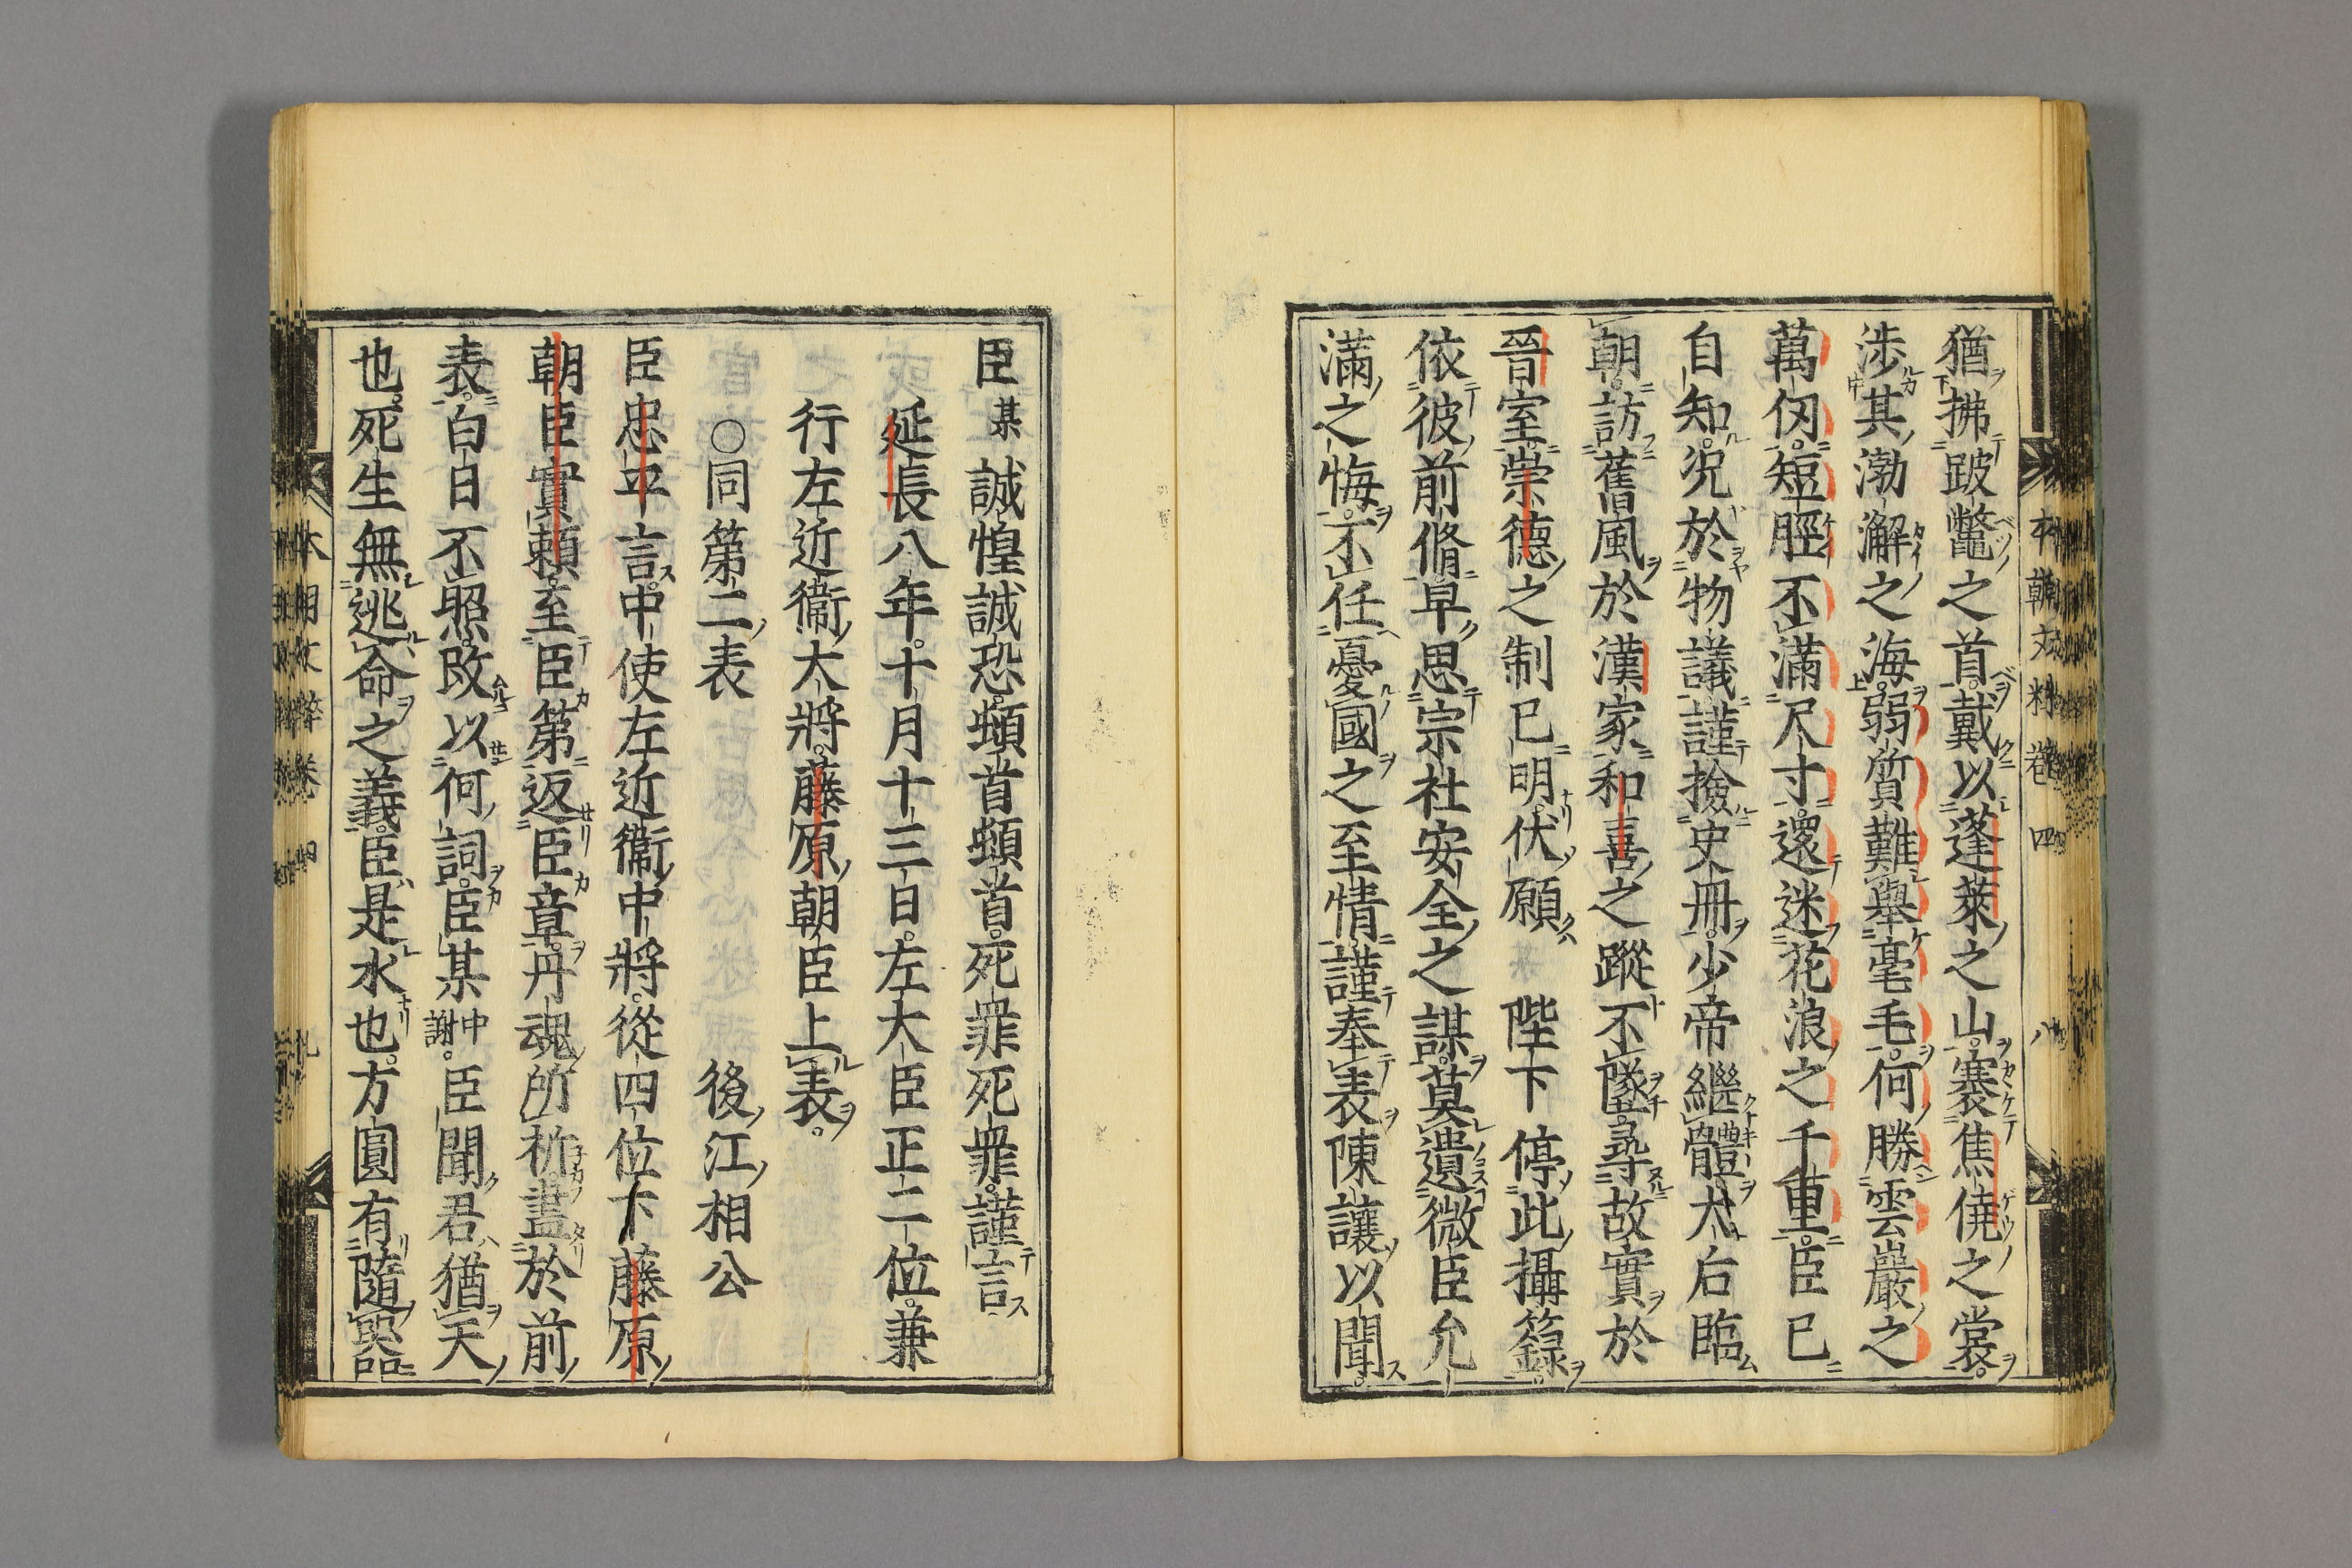 猶拂跛鼈之首。戴以蓬萊之山。褰焦僥之裳。
涉其渤澥之海。弱質難舉毫毛。何勝雲巖之
萬仞。短脛不滿尺寸。還迷花浪之千重。臣已
自知。況於物議。謹撿史冊。少帝繼體。太后臨
朝。訪舊風於漢家。和喜之蹤不墜。尋故實於
晉室。崇德之制已明。伏願 陛下停此攝籙。
依彼前脩。早思宗社安全之謀。莫遺微臣允
滿之悔。不任憂國之至情。謹奉表陳讓以聞。
臣某誠惶誠恐。頓首頓首。死罪死罪。謹言
延長八年。十月十三日。左大臣正二位。兼
行左近衞大將。藤原朝臣上表。
〇同第二表 後江相公
臣忠平言。中使左近衞中將。從四位下藤原
朝臣實賴至。臣第返臣章。丹魂所析。盡於前
表。白日不照。改以何詞。臣某中謝。臣聞君猶天
也。死生無逃命之義。臣是水也。方圓有隨器
本朝文粹卷四 八